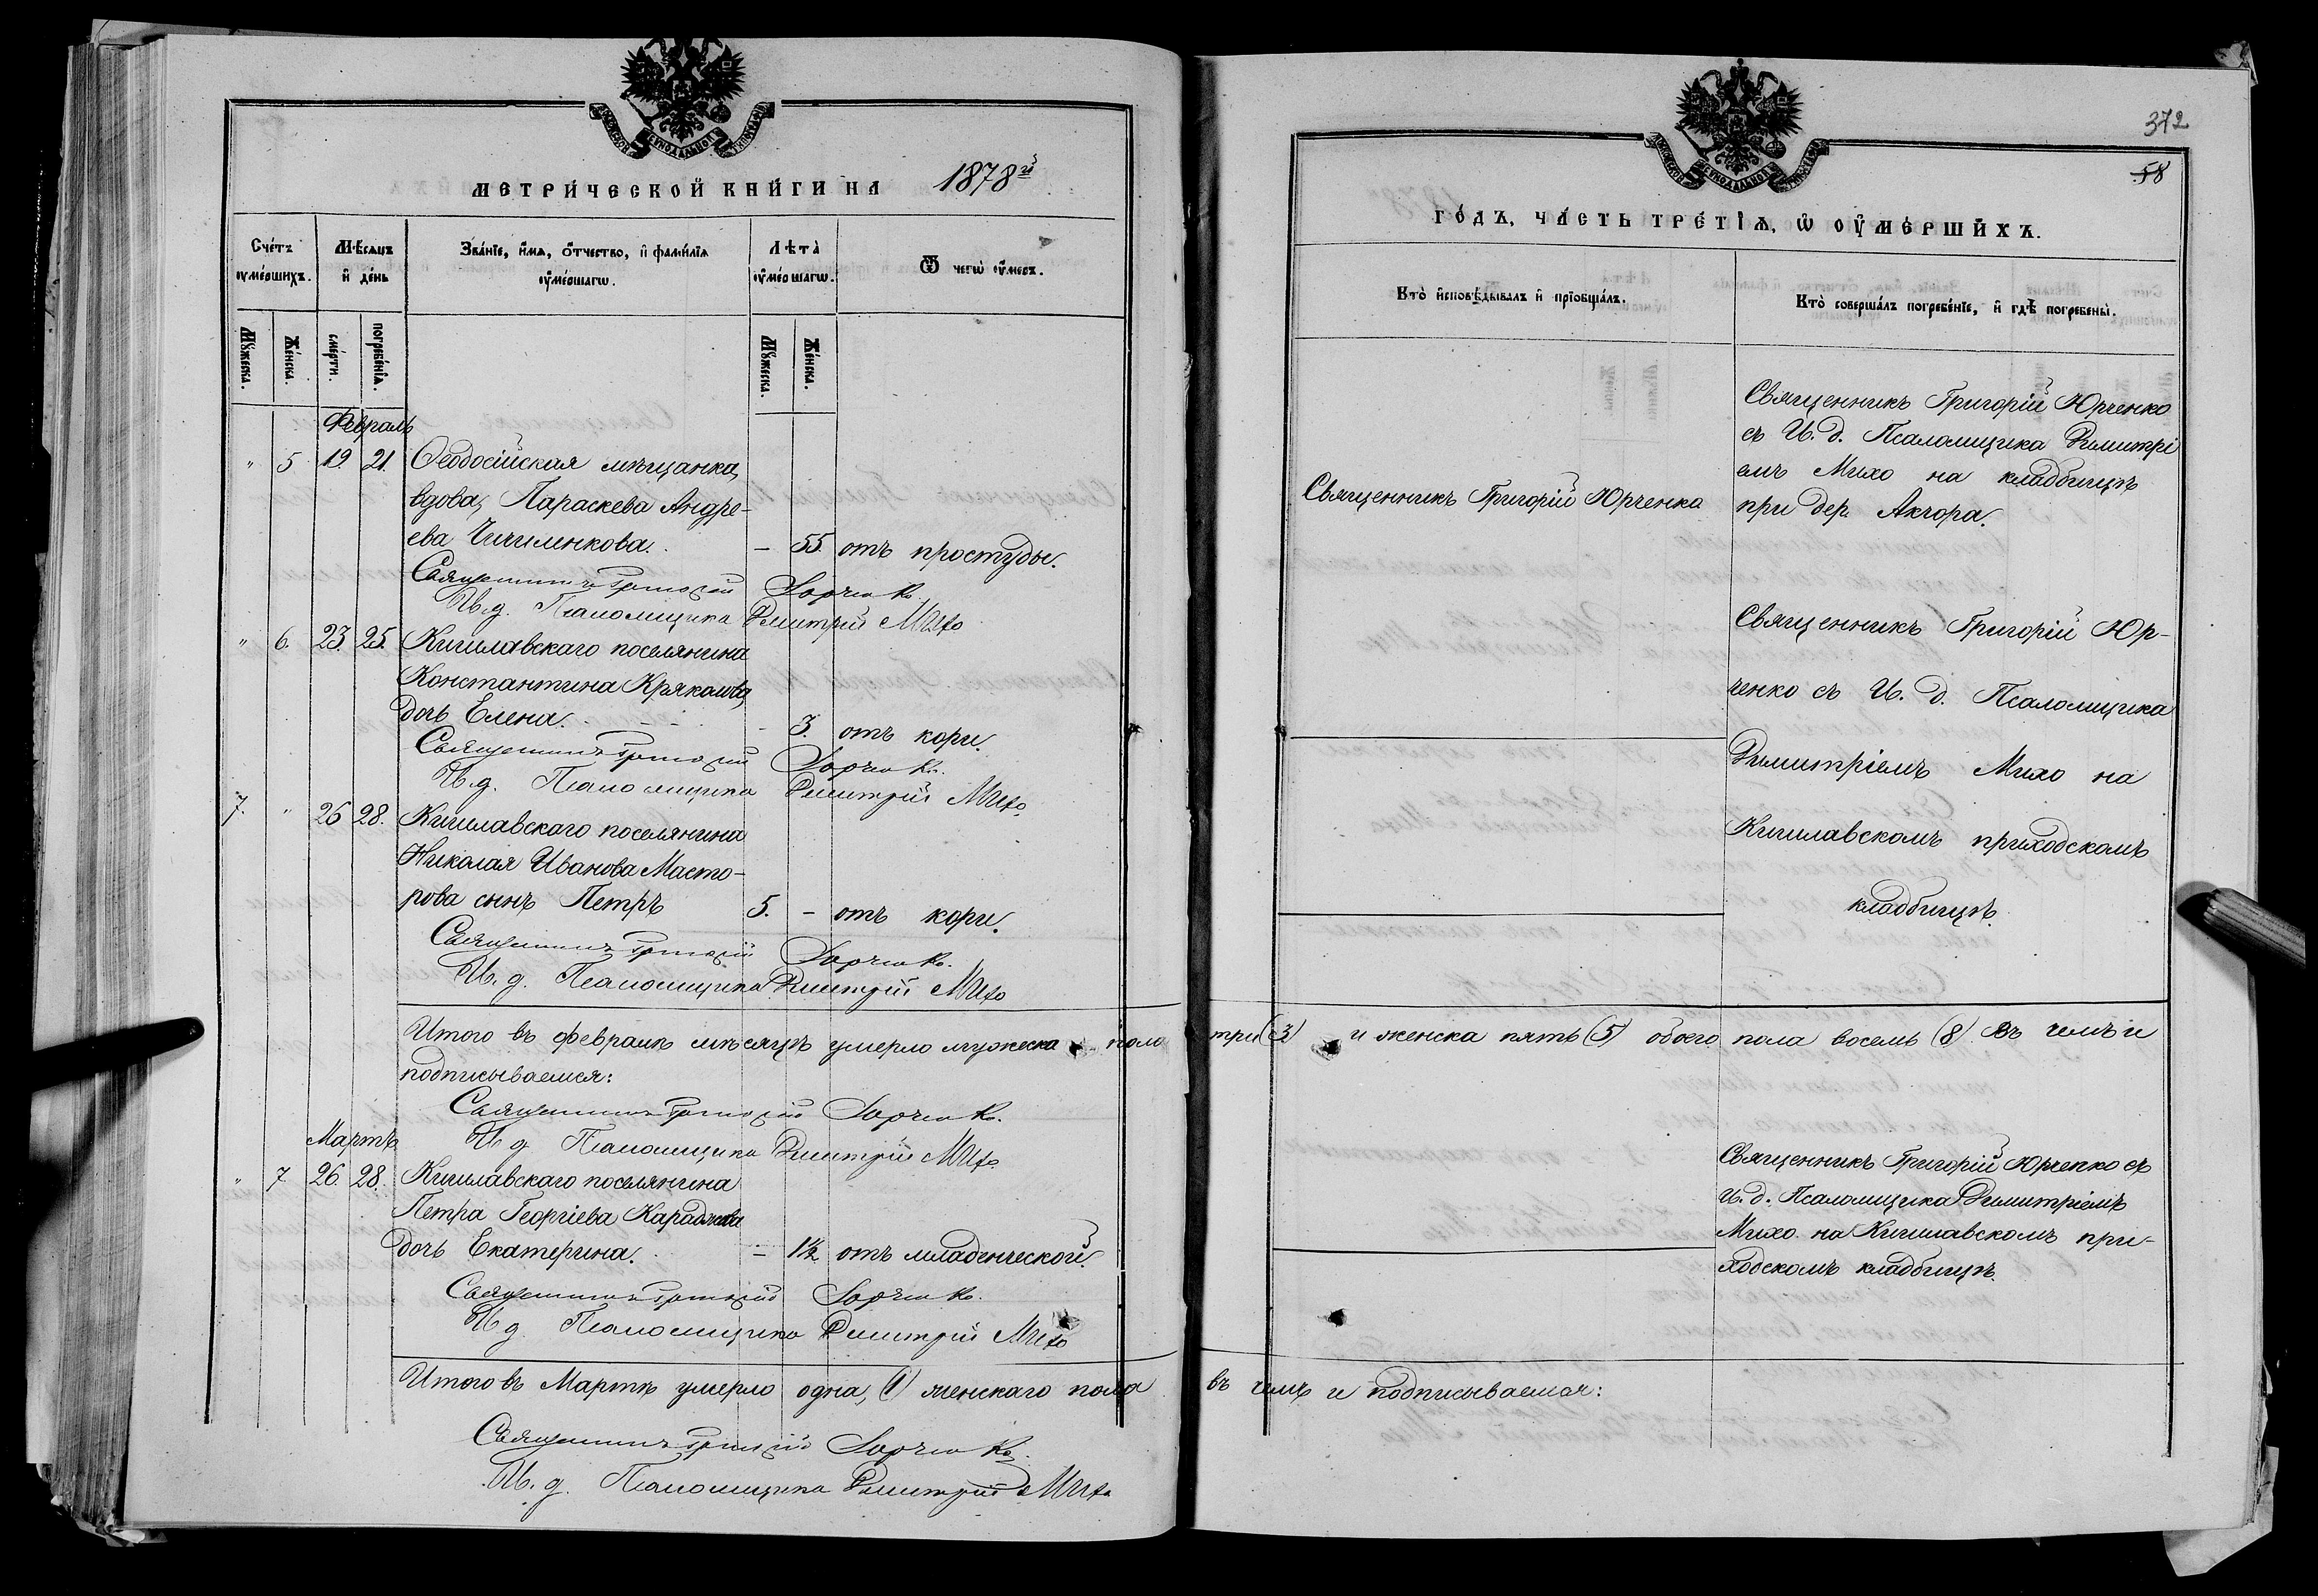 МЕТРИЧЕСКОЙ КНИГИ НА 1878й
Счетъ умершихъ.
Мѣсяцъ и день
Званіе, имя, отчество, и фамилія умершагѡ.
Лѣта умершагѡ.
Ѿ чегѡ умеръ.
Мужеска.
Женска.
смерти.
погребенія.
Мужеска.
Женска.
Февраль
" 5 19. 21. Ѳеодосійская мѣщанка,
вдова, Параскева Андре-
ева Чичиленкова. – 55. отъ простуды.
Священникъ Григорій Юрченко
И. д. Псаломщика Димитрій Михо
" 6. 23. 25. Кишлавскаго поселянина
Константина Крякова,
дочь Елена. - 3. отъ кори.
Священникъ Григорій Юрченко.
И. д. Псаломщика Димитрій Михо
7. " 26 28. Кишлавскаго поселянина
Николая Иванова Масто-
рова сынъ Петръ 5. – отъ кори.
Священникъ Григорій Юрченко.
И. д. Псаломщика Димитрій Михо
Итого въ февралѣ мѣсяцѣ умерло мужеска пола
подписываемся:
Священникъ Григорій Юрченко.
И д Псаломщика Димитрій Михо
Мартъ
" 7 26. 28. Кишлавскаго поселянина
Петра Георгіева Караджова
дочь Екатерина. – 1½ отъ младенческой.
Священникъ Григорій Юрченко.
И д. Псаломщика Димитрій Михо
Итого въ Мартѣ умерло одна, (1) женскаго пола
Священникъ Григорій Юрченко.
И. д. Псаломщика Димитрій Михо
372
58
ГОДЪ, ЧАСТЬ ТРЕТІЯ, Ѡ УМЕРШИХЪ.
Кто исповѣдывалъ и пріобщалъ.
Кто совершалъ погребеніе, и гдѣ погребены.
Священникъ Григорій Юрченка
Священникъ Григорій Юрченко
съ И. д. Псаломщика Димитрі
емъ Михо на кладбищѣ
при дер. Акчора.
Священникъ Григорій Юр-
ченко съ И. д. Псаломщика
Димитріемъ Михо на
Кишлавскомъ приходскомъ
кладбищѣ.
три (3) и женска пять (5) обоего пола восемь (8) Въ чемъ и
Священникъ Григорій Юрченко съ
И. д. Псаломщика Димитріемъ
Михо на Кишлавскомъ при-
ходскомъ кладбищѣ.
въ чемъ и подписываемся: